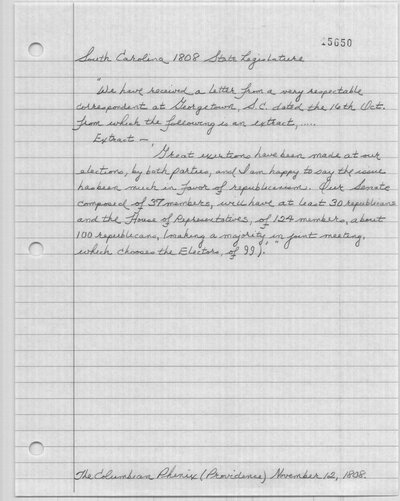 15650
South Carolina 1808 State Legislature
"We have received a letter from a very respectable
correspondent at Georgetown, S.C. dated the 16th Oct.
from which the following is an extract,.....
Extract —
'Great exertions have been made at our
elections, by both parties, and I am happy to say the issue
has been much in favor of republicanism. Our Senate
composed of 37 members, will have at least 30 republicans
and the House of Representatives, of 124 members, about
100 republicans, (making a majority in joint meeting,
which chooses the Electors, of 99).'"
The Columbian Phenix (Providence) November 12, 1808.